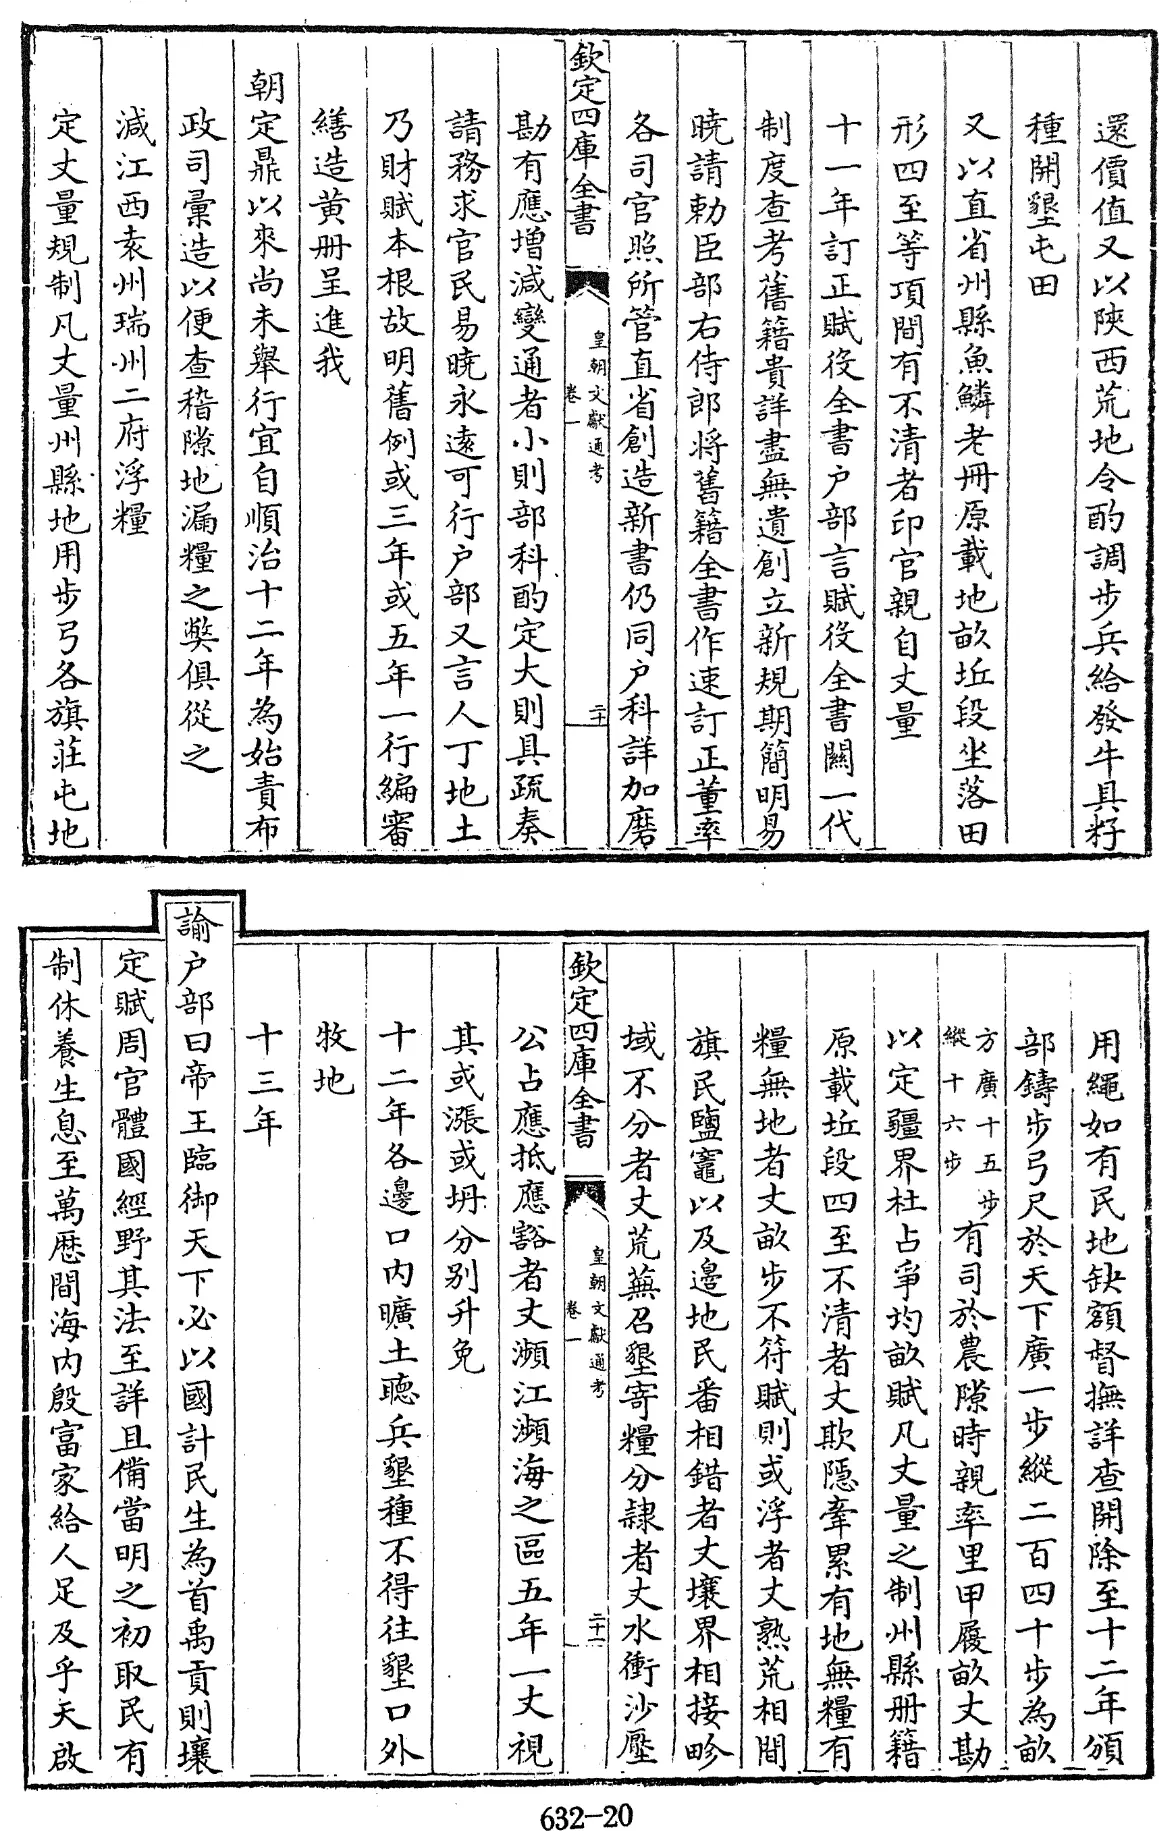 還價值又以陜西荒地令酌調步兵給發牛具籽
種開墾屯田
又以直省州縣魚鱗老冊原載地畝坵段坐落田
形四至等項間有不清者印官親自丈量
十一年訂正賦役全書户部言賦役全書關一代
制度查考舊籍貴詳盡無遺創立新規期簡明易
曉請勅臣部右侍郎將舊籍全書作速訂正董率
各司官照所管直省創造新書仍同户科詳加磨
欽定四庫全書
皇朝文獻通考
卷一
二十
勘有應增減變通者小則部科酌定大則具疏奏
請務求官民易曉永遠可行户部又言人丁地土
乃財賦本根故明舊例或三年或五年一行編審
繕造黄册呈進我
朝定鼎以來尚未舉行宜自順治十二年為始責布
政司彙造以便查稽隙地漏糧之獘俱從之
減江西袁州瑞州二府浮糧
定丈量規制凡丈量州縣地用步弓各旗莊屯地
用繩如有民地缺額督撫詳查開除至十二年頒
部鑄步弓尺於天下廣一步縱二百四十步為畝
方廣十五步
縱十六步
有司於農隙時親率里甲履畝丈勘
以定疆界杜占爭均畝賦凡丈量之制州縣册籍
原載坵段四至不清者丈欺隱牽累有地無糧有
糧無地者丈畝步不符賦則或浮者丈熟荒相間
旗民鹽竈以及邊地民番相錯者丈壤界相接畛
域不分者丈荒蕪召墾寄糧分隷者丈水衝沙壓
欽定四庫全書
皇朝文獻通考
卷一
二十一
公占應抵應豁者丈瀕江瀕海之區五年一丈視
其或漲或坍分别升免
十二年各邊口内曠土聽兵墾種不得往墾口外
牧地
十三年
諭户部曰帝王臨御天下必以國計民生為首禹貢則壤
定賦周官體國經野其法至詳且備當明之初取民有
制休養生息至萬厯間海内殷富家給人足及乎天啟
632-20